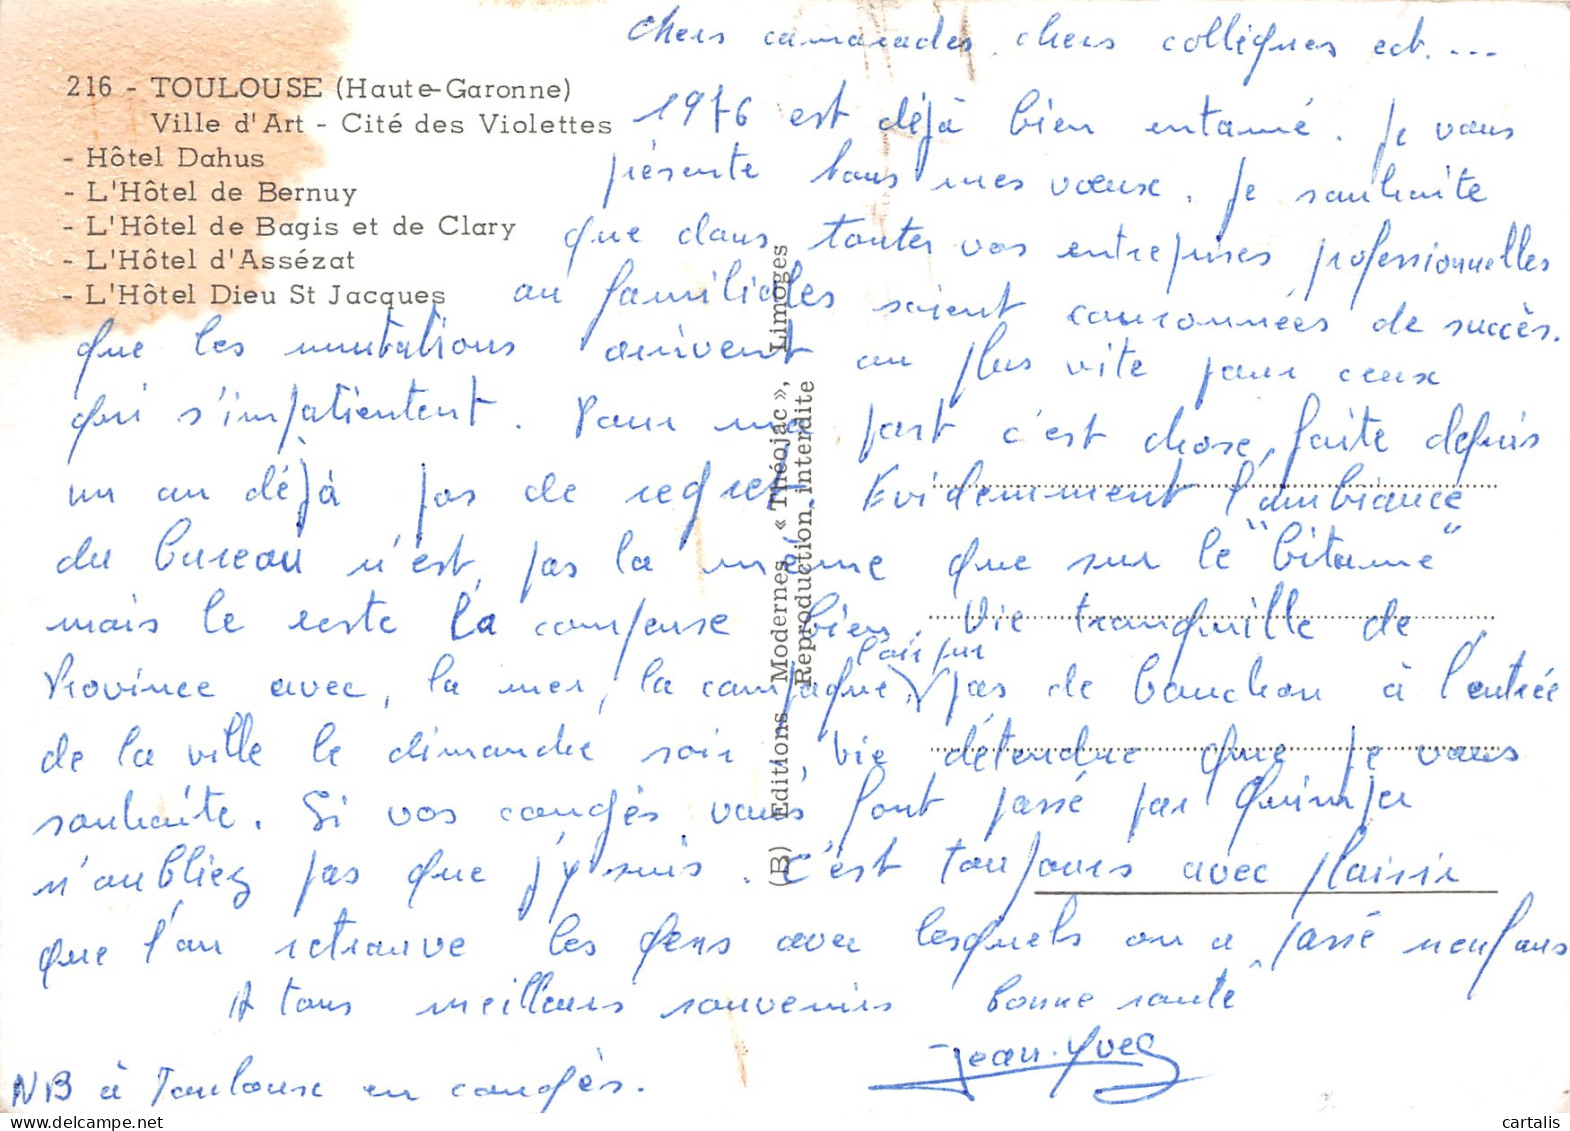 chers camarades, chers collègues ect....
216 - TOULOUSE (Haute-Garonne)
Ville d'Art - Cité des Violettes
- Hôtel Dahus
- L'Hôtel de Bernuy
- L'Hôtel de Bagis et de Clary
- L'Hôtel d'Assézat
- L'Hôtel Dieu St Jacques
1976 est déjà bien entamé. Je vous
présente tous mes voeux. Je souhaite
que dans toutes vos entreprises professionnelles
ou familiales soient couronnées de succès.
que les mutations arrivent au plus vite pour ceux
qui s'impatientent. Pour ma part c'est chose faite depuis
un an déjà pas de regret. Evidemment l'ambiance
du bureau n'est pas la même que sur le "bitume"
mais le reste la compense bien. Vie tranquille de
Province avec, la mer, la campagne, l'air pur pas de bouchon à l'entrée
de la ville le dimanche soir, vie détendue que je vous
souhaite. Si vos congés vous font passé par Quimper
n'oubliez pas que j'y suis. C'est toujours avec plaisir
que l'on retrouve les gens avec lesquels on a passé neuf ans
A tous meilleurs souvenirs bonne santé
Jean-Yves
NB à Toulouse en congès.
(B) Editions Modernes « Théojac », Limoges
Reproduction interdite
cartalis